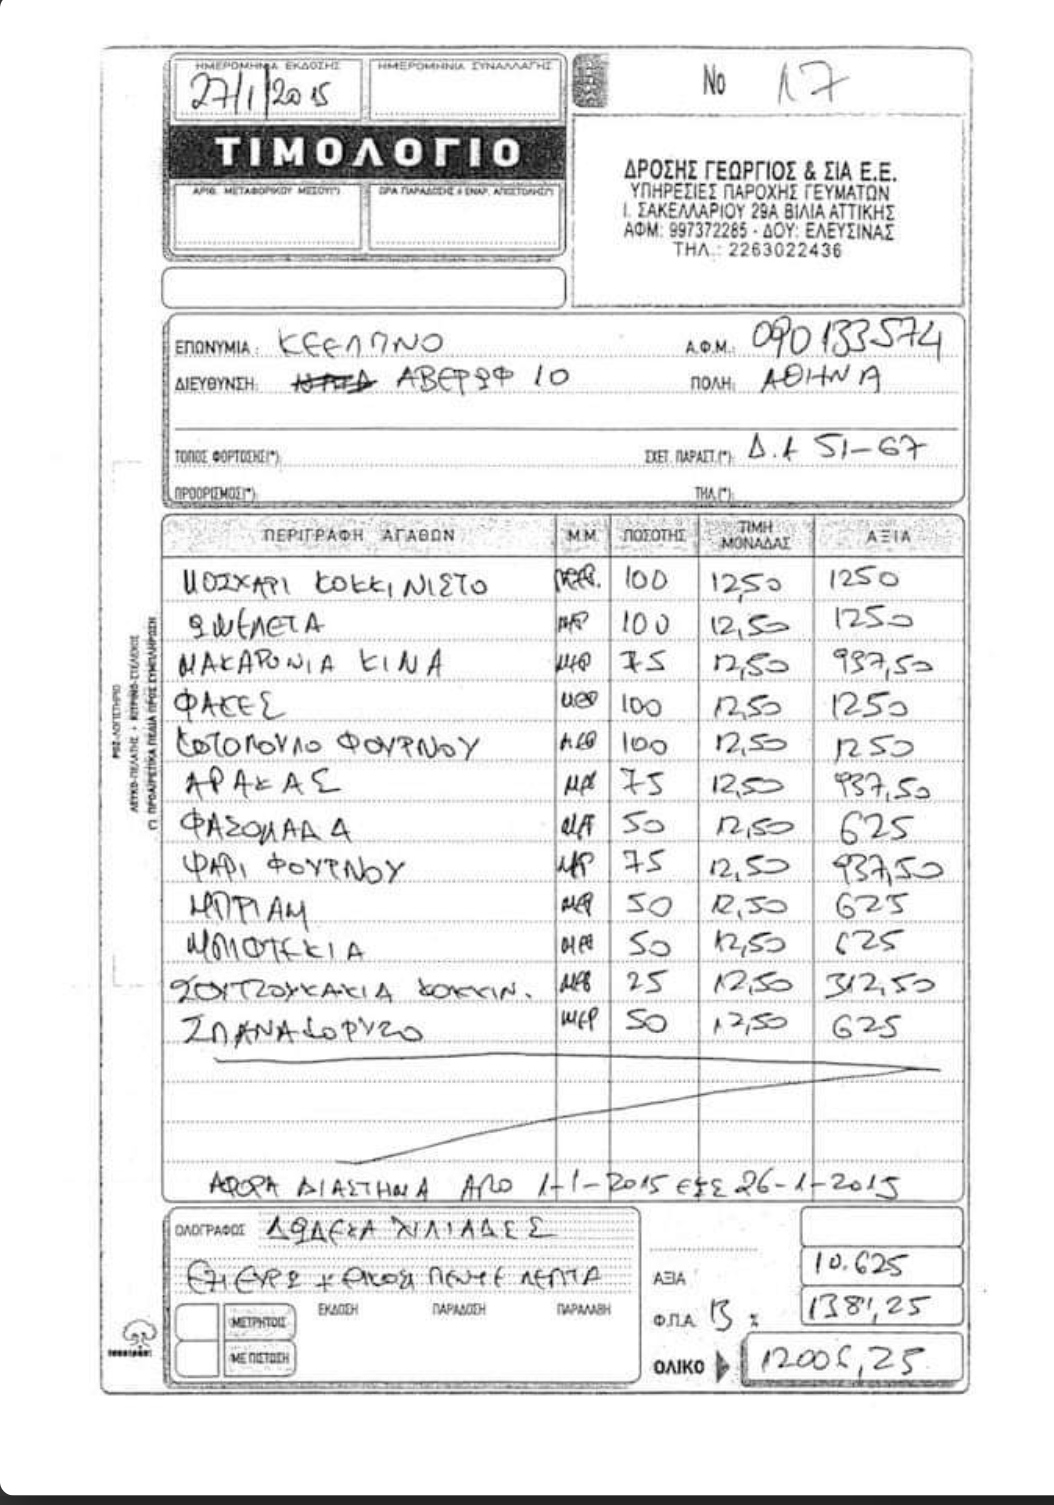 ΗΜΕΡΟΜΗΝΙΑ ΕΚΔΟΣΗΣ ΗΜΕΡΟΜΗΝΙΑ ΣΥΝΑΛΛΑΓΗΣ
27/1/2015
Νο 17
ΤΙΜΟΛΟΓΙΟ
ΑΡΙΘ. ΜΕΤΑΦΟΡΙΚΟΥ ΜΕΣΟΥ(*) ΩΡΑ ΠΑΡΑΔΟΣΗΣ ή ΕΝΑΡ. ΑΠΟΣΤΟΛΗΣ(*)
ΔΡΟΣΗΣ ΓΕΩΡΓΙΟΣ & ΣΙΑ Ε.Ε.
ΥΠΗΡΕΣΙΕΣ ΠΑΡΟΧΗΣ ΓΕΥΜΑΤΩΝ
Ι. ΣΑΚΕΛΛΑΡΙΟΥ 29Α ΒΙΛΙΑ ΑΤΤΙΚΗΣ
ΑΦΜ: 997372285 - ΔΟΥ: ΕΛΕΥΣΙΝΑΣ
ΤΗΛ.: 2263022436
ΕΠΩΝΥΜΙΑ: ΚΕΕΛΠΝΟ Α.Φ.Μ.: 090133574
ΔΙΕΥΘΥΝΣΗ: ΑΒΕΡΩΦ 10 ΠΟΛΗ: ΑΘΗΝΑ
ΤΟΠΟΣ ΦΟΡΤΩΣΗΣ(*): ΣΧΕΤ. ΠΑΡΑΣΤ.(*): Δ.Α 51-67
ΠΡΟΟΡΙΣΜΟΣ(*): ΤΗΛ.(*):
ΠΕΡΙΓΡΑΦΗ ΑΓΑΘΩΝ Μ.Μ. ΠΟΣΟΤΗΣ ΤΙΜΗ ΜΟΝΑΔΑΣ ΑΞΙΑ
ΜΟΣΧΑΡΙ ΚΟΚΚΙΝΙΣΤΟ ΜΕΡ. 100 12,50 1250
ΩΜΕΛΕΤΑ ΜΕΡ 100 12,50 1250
ΜΑΚΑΡΟΝΙΑ ΚΙΜΑ ΜΕΡ 75 12,50 937,50
ΦΑΚΕΣ ΜΕΡ 100 12,50 1250
ΚΟΤΟΠΟΥΛΟ ΦΟΥΡΝΟΥ ΜΕΡ 100 12,50 1250
ΑΡΑΚΑΣ ΜΕΡ 75 12,50 937,50
ΦΑΣΟΛΑΔΑ ΜΕΡ 50 12,50 625
ΨΑΡΙ ΦΟΥΡΝΟΥ ΜΕΡ 75 12,50 937,50
ΜΠΡΙΑΜ ΜΕΡ 50 12,50 625
ΜΠΙΦΤΕΚΙΑ ΜΕΡ 50 12,50 625
ΣΟΥΤΖΟΥΚΑΚΙΑ ΚΟΚΚΙΝ. ΜΕΡ 25 12,50 312,50
ΣΠΑΝΑΚΟΡΥΖΟ ΜΕΡ 50 12,50 625
ΑΦΟΡΑ ΔΙΑΣΤΗΜΑ ΑΠΟ 1-1-2015 ΕΩΣ 26-1-2015
ΟΛΟΓΡΑΦΩΣ ΔΩΔΕΚΑ ΧΙΛΙΑΔΕΣ
ΕΞΙ ΕΥΡΩ + ΕΙΚΟΣΙ ΠΕΝΤΕ ΛΕΠΤΑ
ΑΞΙΑ 10.625
ΕΚΔΟΣΗ ΠΑΡΑΔΟΣΗ ΠΑΡΑΛΑΒΗ
ΜΕΤΡΗΤΟΙΣ
Φ.Π.Α. 13 % 1381,25
ΜΕ ΠΙΣΤΩΣΗ
ΟΛΙΚΟ 12006,25
ΡΟΖ-ΛΟΓΙΣΤΗΡΙΟ
ΛΕΥΚΟ-ΠΕΛΑΤΗΣ + ΚΙΤΡΙΝΟ-ΣΤΕΛΕΧΟΣ
(*) ΠΡΟΑΙΡΕΤΙΚΑ ΠΕΔΙΑ ΠΡΟΣ ΣΥΜΠΛΗΡΩΣΗ